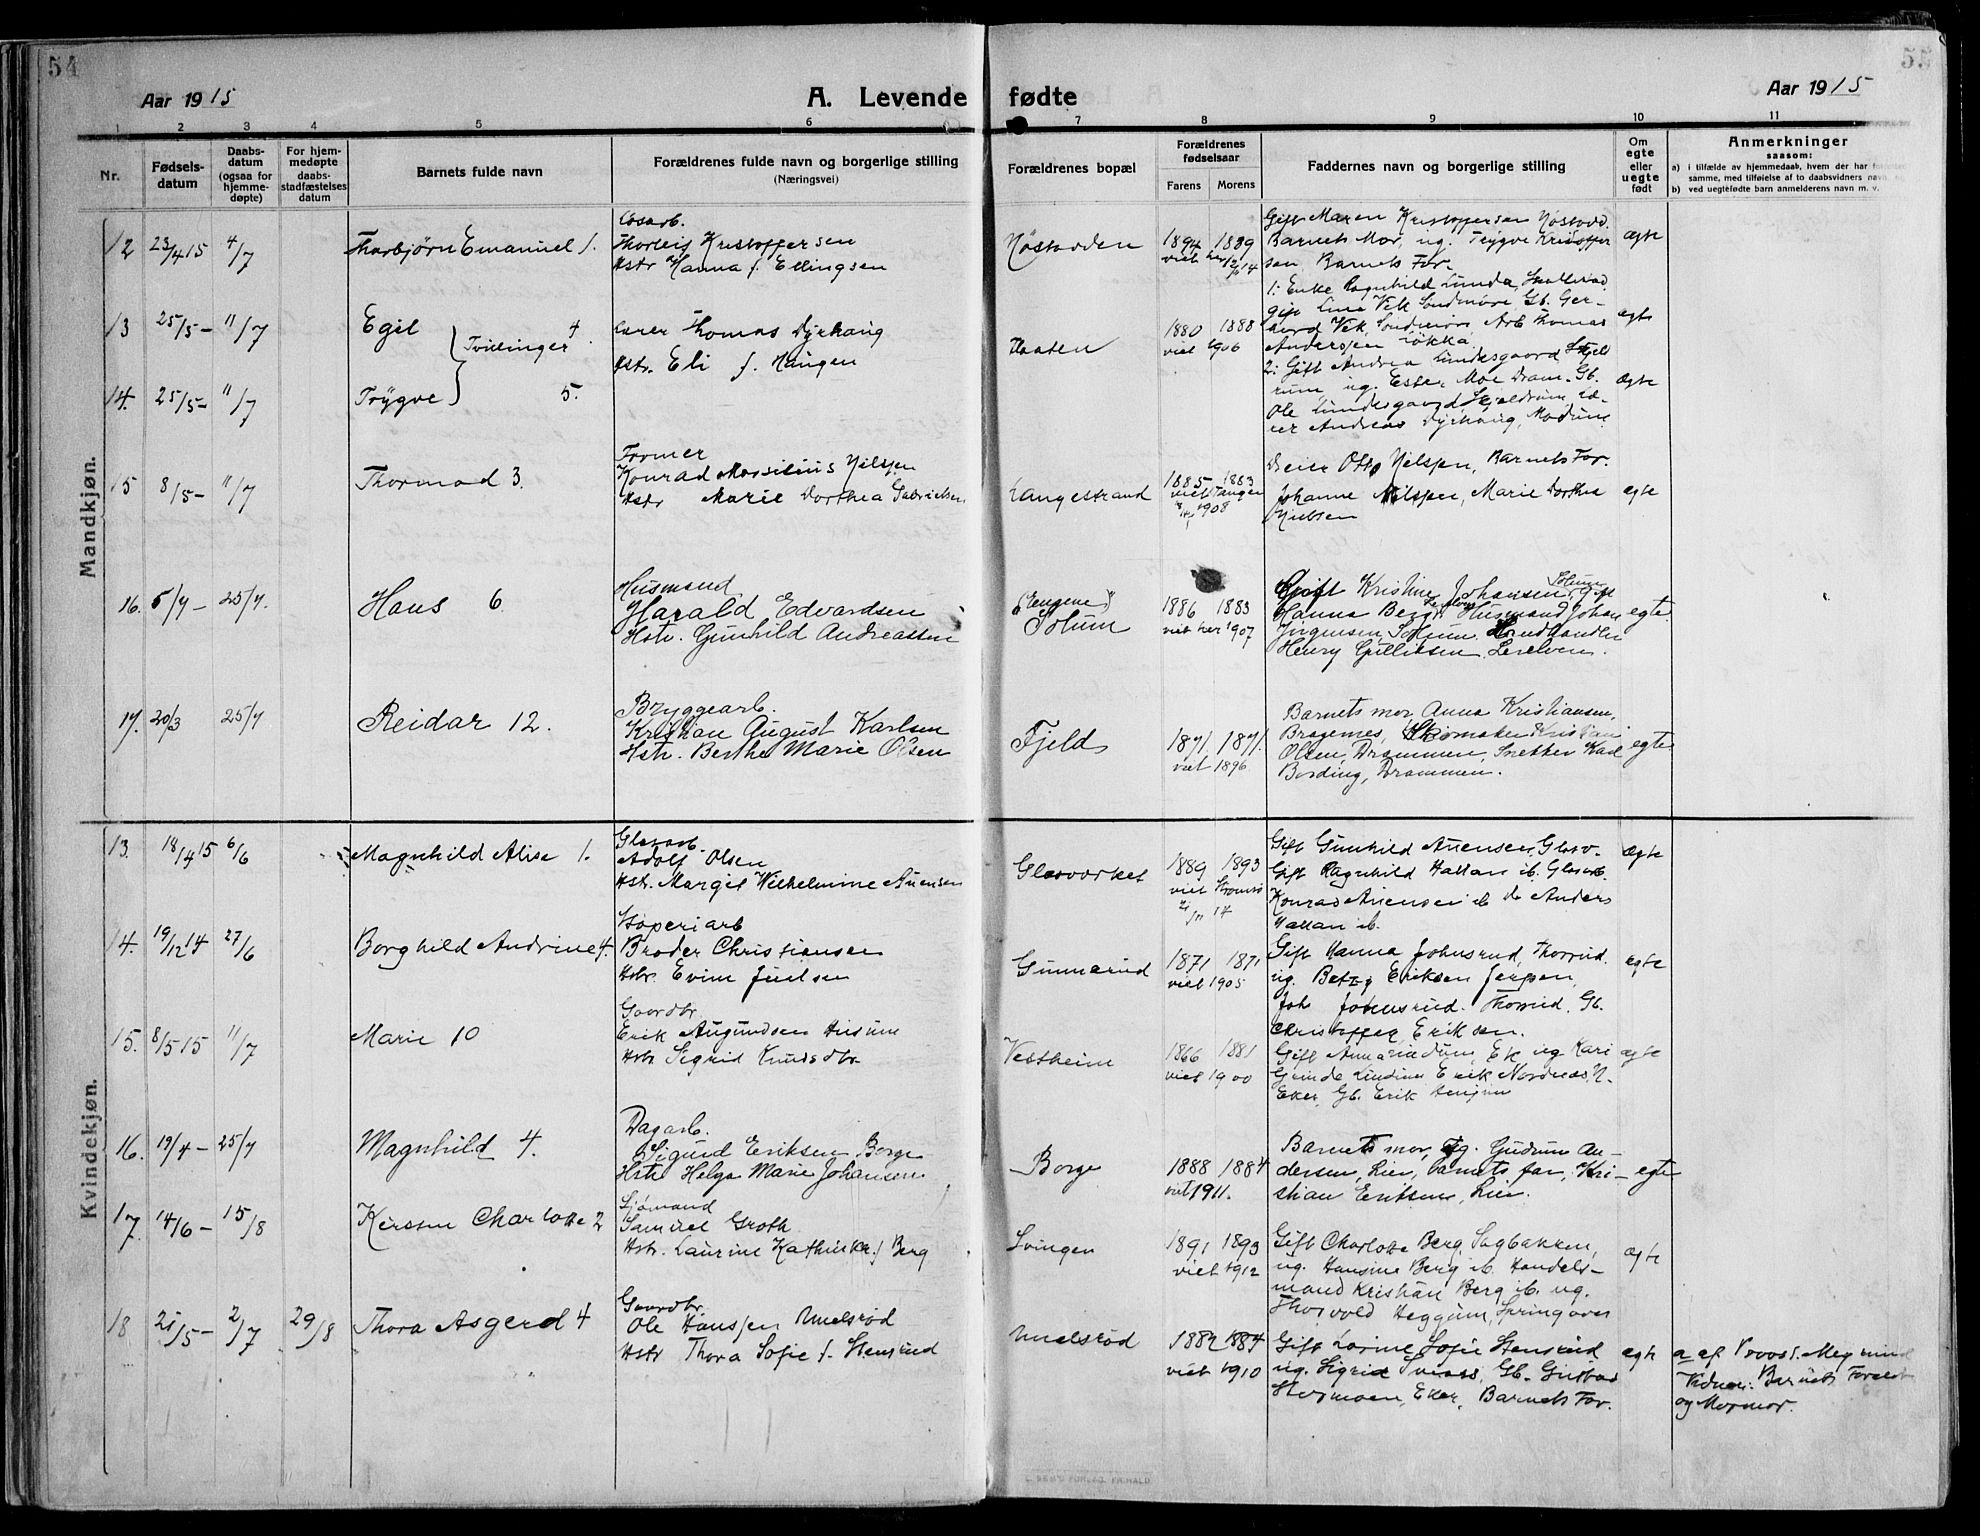 54
55
Aar 1915
A. Levende fødte
Aar 1915
1 2 3 4 5 6 7 8 9 10 11
Nr.
Fødsels-
datum
Daabs-
datum
(ogsaa for
hjemme-
døpte)
For hjem-
medøpte
daabs-
stadfæstelses
datum
Barnets fulde navn
Forældrenes fulde navn og borgerlige stilling
(Næringsvei)
Forældrenes bopæl
Forældrenes
fødselsaar
Farens Morens
Faddernes navn og borgerlige stilling
Om
egte
eller
uegte
født
Anmerkninger
saasom:
a) i tilfælde av hjemmedaab, hvem der har
samme, med tilføielse af to daabsvidners navn
b) ved uegtefødte barn anmelderens navn m. v.
Mandkjøn.
12 23/4 15 4/7 Thorbjørn Emanuel 1.
Løsarb.
Thorleif Kristoffersen
Hstr Hanna f. Ellingsen
Nøstodden
1894 1889
viet her 12/12 14
Gift Maren Kristoffersen Nøstodd.
Barnets Mor, ug. Trygve Kristoffer
sen, Barnets Far.
ægte
13 25/5 – 11/7 Egil 4
Tvillinger
Thomas Dyrhaug
Hstr. Eli f. Haugen
1880 1888
viet 1906
1: Enke Ragnhild Lunda,
gift Lina Vik Søndmøre Gb. Ger-
hard Vik, Søndmøre, Arb Thomas
Anderssen Løkka
ægte
14. 25/5 – 11/7 Trygve 5.
2: Gift Andrea Lundesgaard
rum, ug. Ester Moe Dram. Gb.
Ole Lundesgaard, Skjeldrum,
Andreas Dyrhaug, Modum
ægte
15 8/5 – 11/7 Thormod 3
Former
Konrad Nilssen
Hstr Marie Dorthea Gabrielsen
Langestrand
1885 1883
viet Tangen
1908
Otto Nilssen, Barnets Far.
Johanne Nilssen, Marie Dorthea
Nielsen
ægte
16. 5/7 – 25/7. Hans 6
Husmand
Harald Edvardsen
Hstr. Gunhild Andreassen
(Engene)
Solum
1886 1883
viet her 1907
Gift Kristine Johansen, Solum, Gift
Hanna Berg, Husmand Johan
Jørgensen, Solum.
Henry Gulliksen, Lerelven.
egte.
17. 20/3 25/7 Reidar 12.
Bryggearb.
Kristian August Karlsen
Hstr. Berthe Marie Olsen
Fjeld
1871. 1871.
viet 1896
Barnets mor, Anna Kristiansen,
Bragernes, Skomaker Kristian
Olsen, Drammen, Snekker Karl
Bording, Drammen.
egte
Kvindekjøn.
13. 18/4 15 6/6 Magnhild Alise 1.
Glasarb.
Adolf Olsen
Hstr. Margit Wilhelmine Auensen
Glasværket
1889 1893
viet Strømsø
21/11 14
Gift Gunhild Auensen, Glasv.
Gift Ragnhild Hallan ib. Glasarb.
Konrad Auensen ib do Anders
Hallan ib.
ægte
14. 19/12 14 27/6 Borghild Andrine 4.
Støperiarb
Broder Christiansen
Hstr. Evine Juelsen
Gunnerud
1871 1871
viet 1905
Gift Hanna Johnsrud, Thorrud.
ug. Betzy Eriksen Jerpen,
Joh Johnsrud. Thorrud, Gb.
Christoffer Eriksen.
egte
15. 8/5 15 11/7 Marie 10
Gaardbr.
Erik Augundsen
Hstr Sigrid Knudsdtr.
Vestheim
1866 1881
viet 1900
Erik Nordnes, N.
Eker, Gb. Erik
ægte
16. 19/4 – 25/7 Magnhild 4.
Dagarb.
Sigurd Eriksen Borge
Hstr Helga Marie Johansen
Borge
1888 1884
viet 1911.
Barnets mor, Pg. Gudrun An-
dersen, Lier, barnets far, Kri-
stian Eriksen, Lier.
egte
17. 14/6 – 15/8 Kirsten Charlotte 2
Sjømand
Samuel Groth
Hstr. Laurine Kathinka f Berg
Svingen
1891 1893
viet 1912
Gift Charlotte Berg, Sagbakken,
ug. Hansine Berg ib. Handels-
mand Kristian Berg ib. ug.
Thorvold Heggum, Spring
ægte
18 21/5 – 2/7 29/8 Thora Asgerd 4
Gaardbr.
Ole Hanssen Umelsrød
Hstr Thora Sofie f. Stensrud
Umelsrød
1882 1884
viet 1910
Gift Lovine Sofie Stensrud
ug. Sigrid Gb. Gustav
Stormoen, Eker, Barnets Far.
egte
a af
Vidner: Barnets Foreldr
og Mormor.